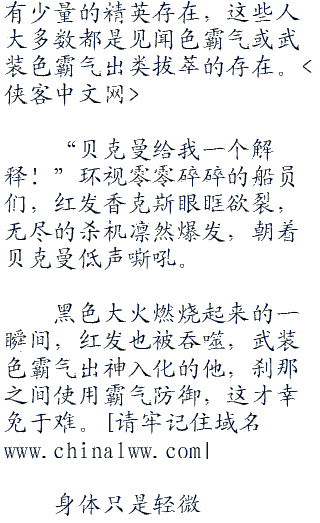 有少量的精英存在，这些人
大多数都是见闻色霸气或武
装色霸气出类拔萃的存在。<
侠客中文网>
“贝克曼给我一个解
释！”环视零零碎碎的船员
们，红发香克斯眼眶欲裂，
无尽的杀机凛然爆发，朝着
贝克曼低声嘶吼。
黑色大火燃烧起来的一
瞬间，红发也被吞噬，武装
色霸气出神入化的他，刹那
之间使用霸气防御，这才幸
免于难。[请牢记住域名
www.china1ww.com|
身体只是轻微